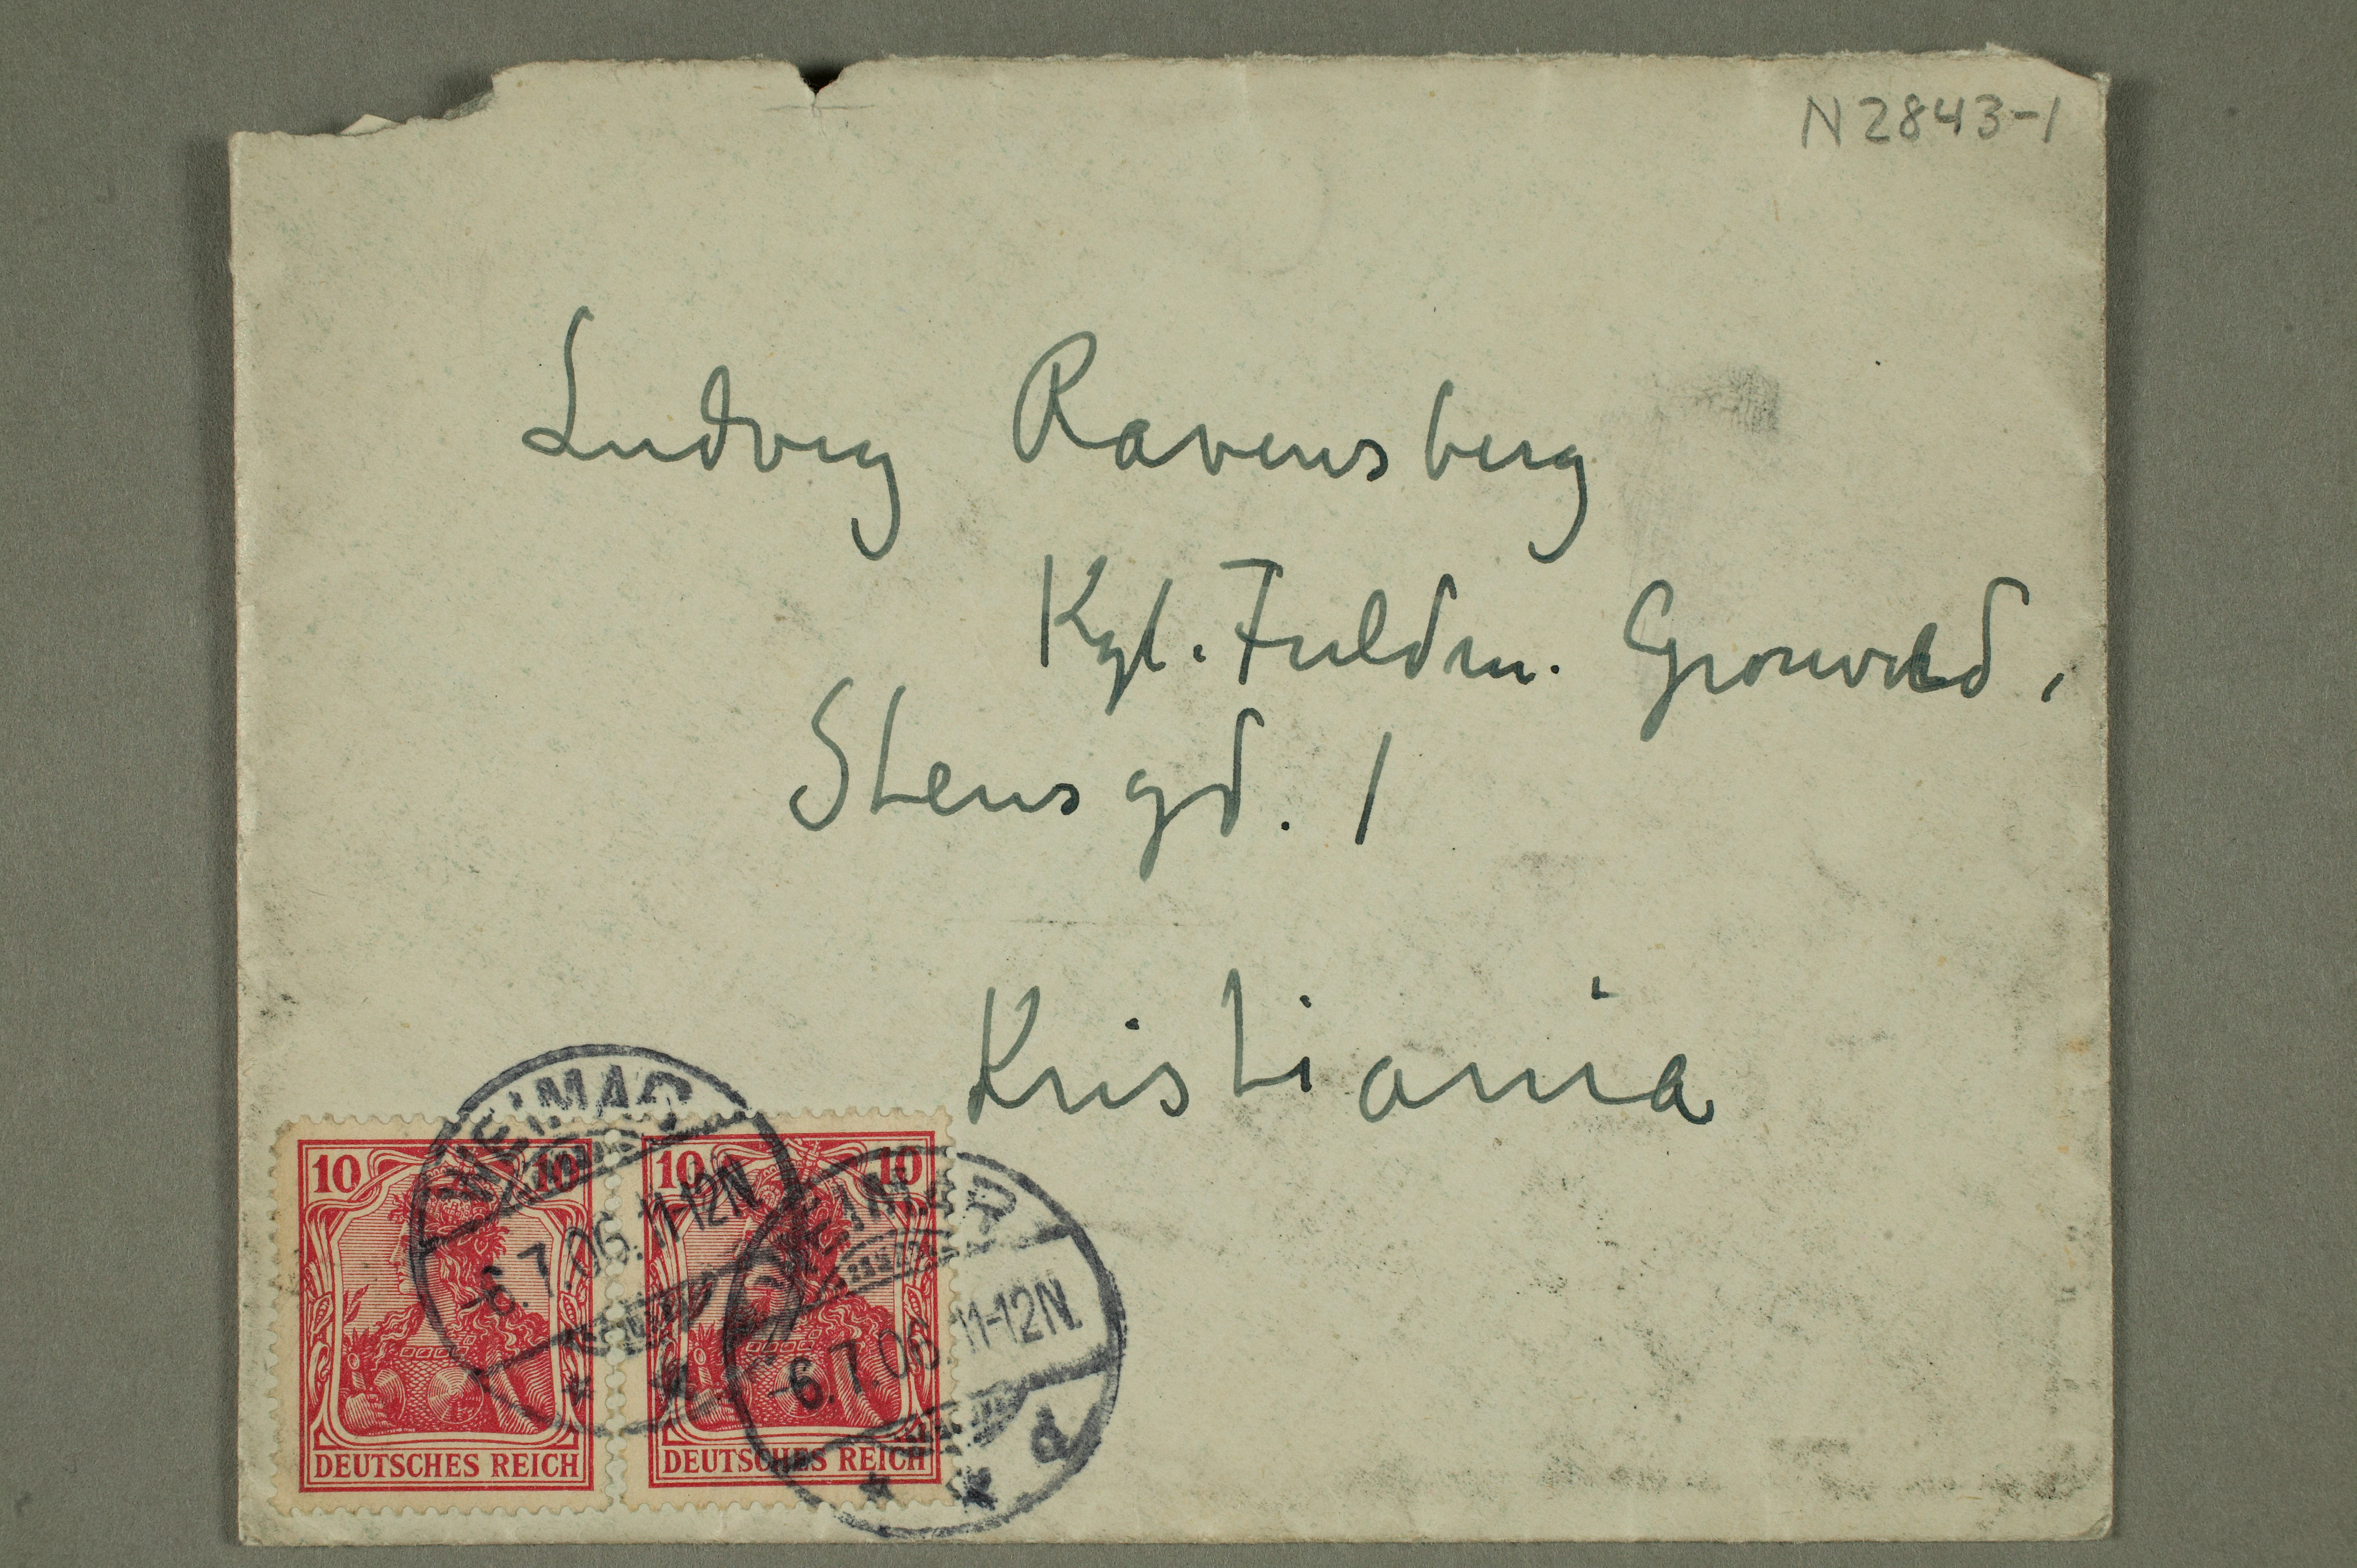 N 2843-1
Ludvig Ravensberg
Kgl. Fuldm. Grønvold,
Stensgd. 1
Kristiania
WEIMAR
-6.7.06. 11-12N
WEIMAR
-6.7.06. 11-12N.
* * d
10 10
DEUTSCHES REICH
10 10
DEUTSCHES REICH